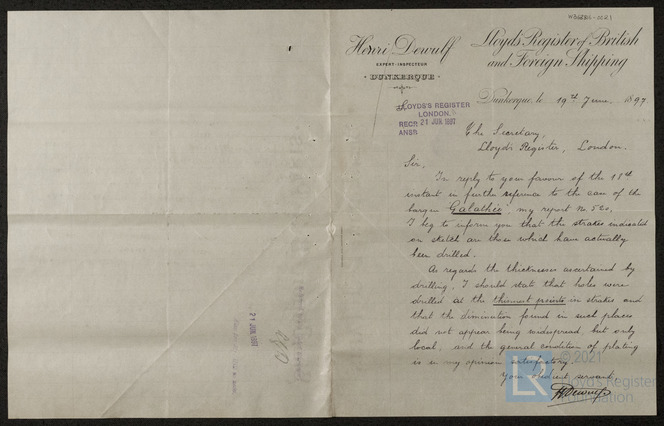 W662B6-0021
Henri Dewulf
EXPERT-INSPECTEUR
DUNKERQUE
Lloyd's Register of British
and Foreign Shipping
Dunkerque, le 19th June 1897.
LLOYDS'S REGISTER
LONDON.
RECR 21 JUN.1897
ANSR
The Secretary,
Lloyd's Register, London.
Sir,
In reply to your favour of the 18th
instant in further reference to the case of the
barque "Galathée", my report No 520,
I beg to inform you that the strakes indicated
on sketch are those which have actually
been drilled.
As regards the thicknesses ascertained by
drilling, I should state that holes were
drilled at the thinnest points in strakes and
that the diminution found in such places
did not appear being widespread, but only
local, and the general condition of plating
is in my opinion satisfactory.
Your obedient servant,
HDewulf
21 JUN.1897
© 2021
LR
Lloyd's Register
Foundation